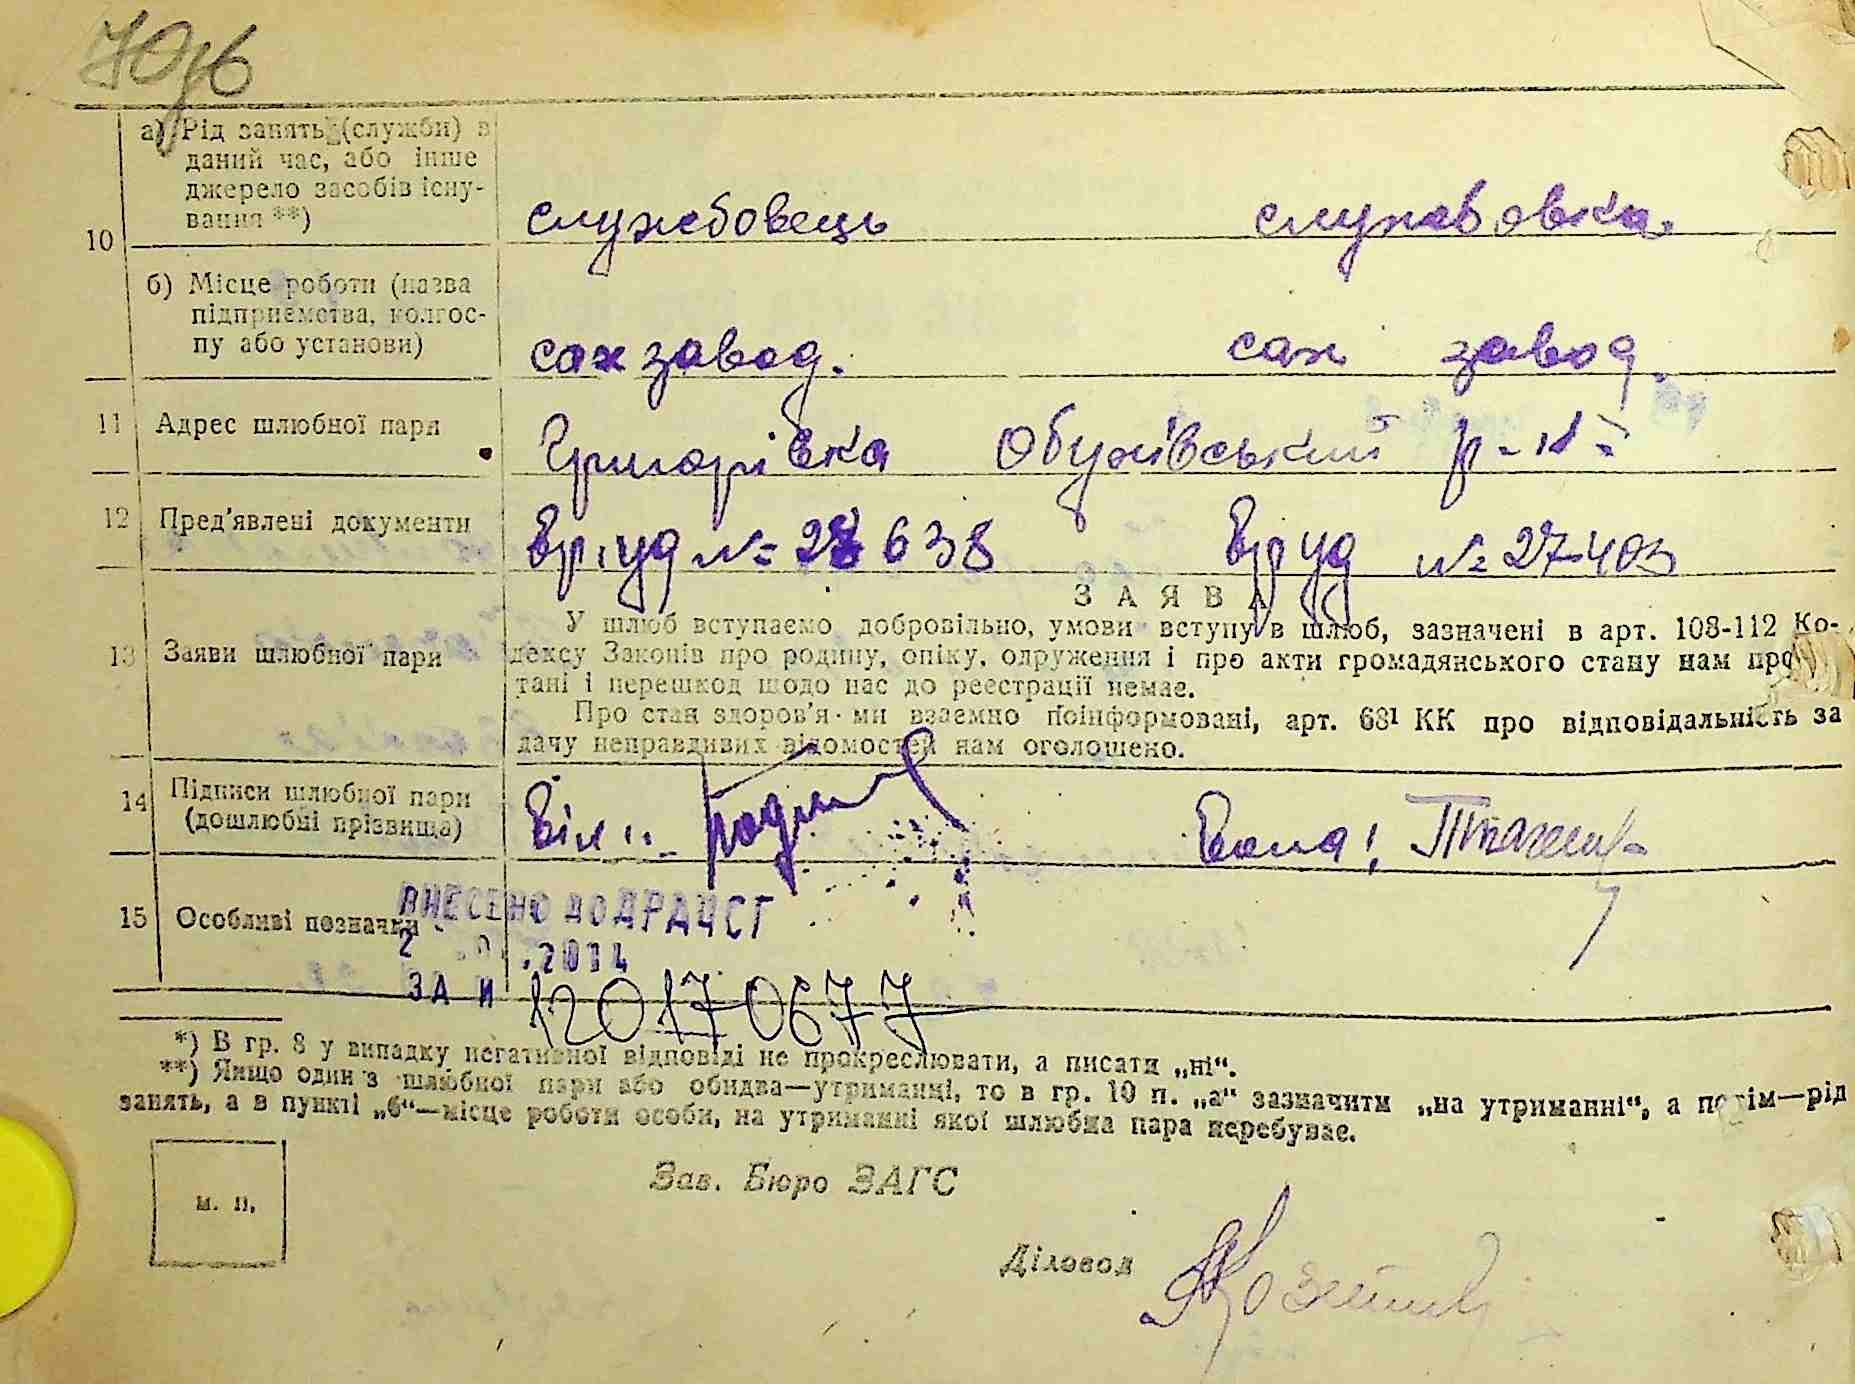 10
а) Рід занять (служби) в
даний час, або інше
джерело засобів існу-
вання **)
службовець службовка
б) Місце роботи (назва
підприємства, колгос-
пу або установи)
сахзавод. сах завод
11 Адрес шлюбної пари
Григорівка Обухівський р-н
12 Пред'явлені документи
№ 28638 № 27403
ЗАЯВА
13 Заяви шлюбної пари
У шлюб вступаємо добровільно, умови вступу в шлюб, зазначені в арт. 108-112 Ко-
дексу Законів про родину, опіку, одруження і про акти громадянського стану нам про
тані і перешкод щодо нас до реєстрації немає.
Про стан здоров'я ми взаємно поінформовані, арт. 68¹ КК про відповідальність за
дачу неправдивих відомостей нам оголошено.
14 Підписи шлюбної пари
(дошлюбні прізвища)
Він Вона
15 Особливі позначки
ВНЕСЕНО ДО ДРАЦСГ
.2014
ЗА И 120170677
*) В гр. 8 у випадку негативної відповіді не прокреслювати, а писати „ні“.
**) Якщо один з шлюбної пари або обидва—утриманці, то в гр. 10 п. „а“ зазначити „на утриманні“, а потім—рід
занять, а в пункті „б“—місце роботи особи, на утриманні якої шлюбна пара перебуває.
м. п.
Зав. Бюро ЗАГС
Діловод